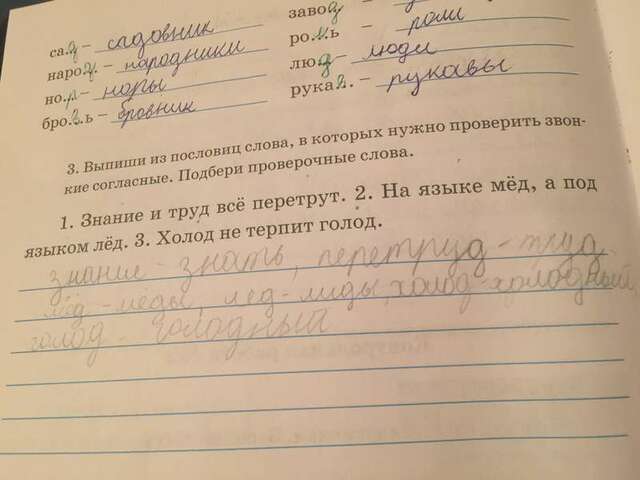 са.д – садовник
наро.д. – народники
но.р – норы
бро.в.ь – бровник
заво.д
ро.л.ь – роли
лю.д – люди
рука.в. – рукавы
3. Выпиши из пословиц слова, в которых нужно проверить звон-
кие согласные. Подбери проверочные слова.
1. Знание и труд всё перетрут. 2. На языке мёд, а под
языком лёд. 3. Холод не терпит голод.
знание - знать, перетруд - труд
мёд - мёды, лед - лиды, холод - холодный,
голод - голодный